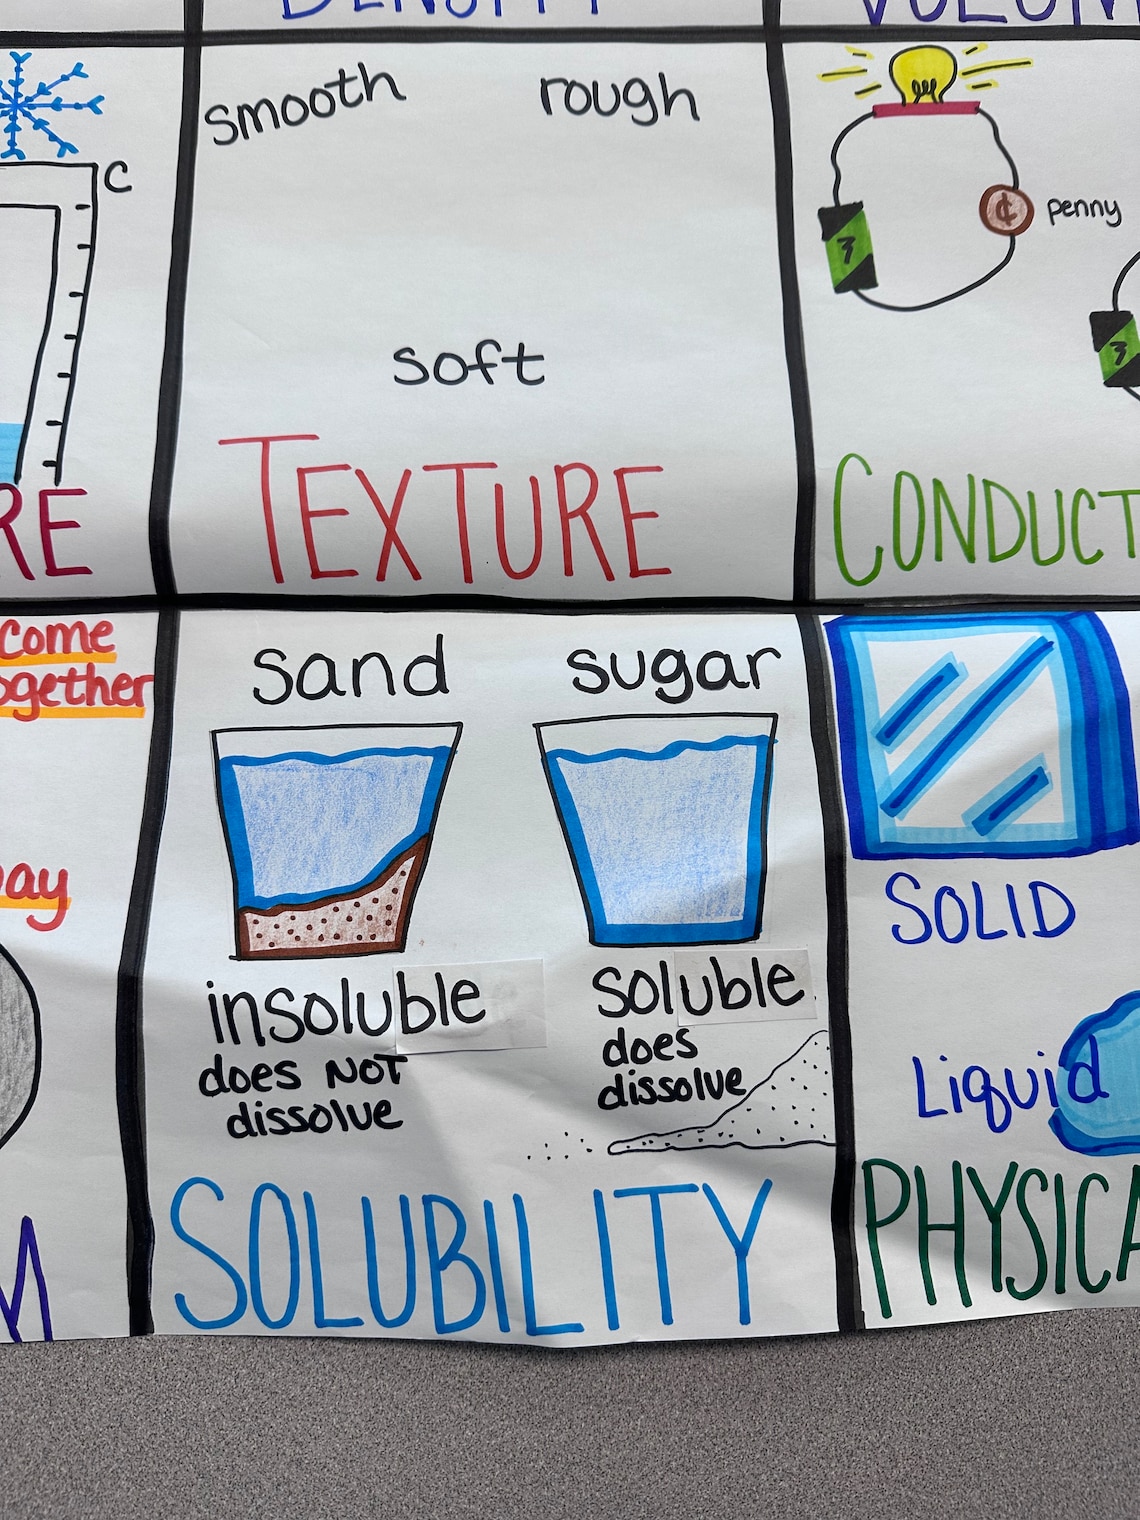 DENSITY
smooth
rough
C
penny
soft
RE
TEXTURE
CONDUCT
come
ogether
ay
sand
sugar
insoluble
does NOT
dissolve
soluble
does
dissolve
SOLID
Liquid
M
SOLUBILITY
PHYSICA